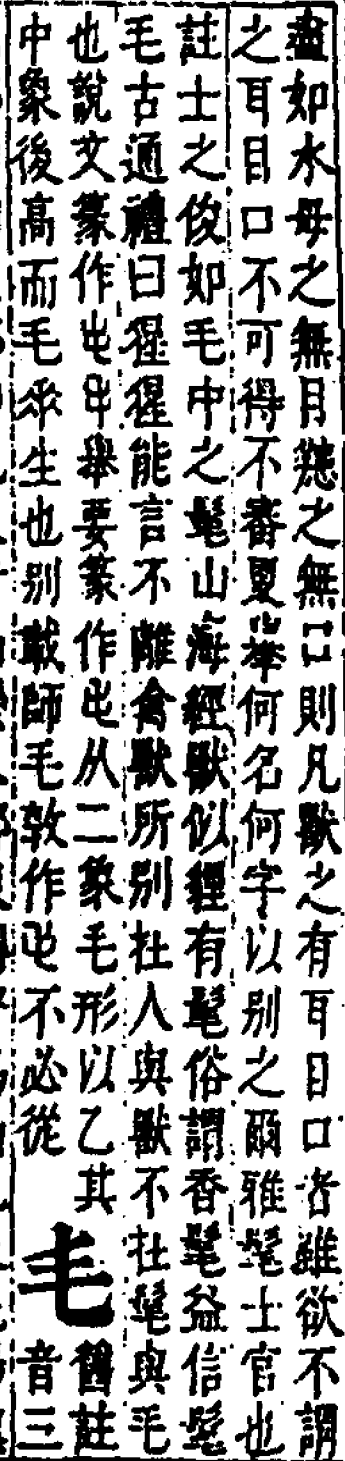 盡如水母之無目𤡬之無口則凡獸之有耳目口者雖欲不謂
之耳目口不可得不審夏舉何名何字以别之爾雅髦士官也
註士之俊如毛中之髦山海經獸似貍有髦俗謂香髦益信髦
毛古通禮曰猩猩能言不離禽獸所别在人與獸不在髦與毛
也說文篆作𠂹舉要篆作屯从二象毛形以乙其
中象後高而毛𠂹生也别戴師毛敦作屯不必從
毛
舊註
音三